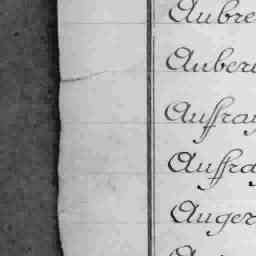 Aubre
Auber
Auffray
Auffra
Auger